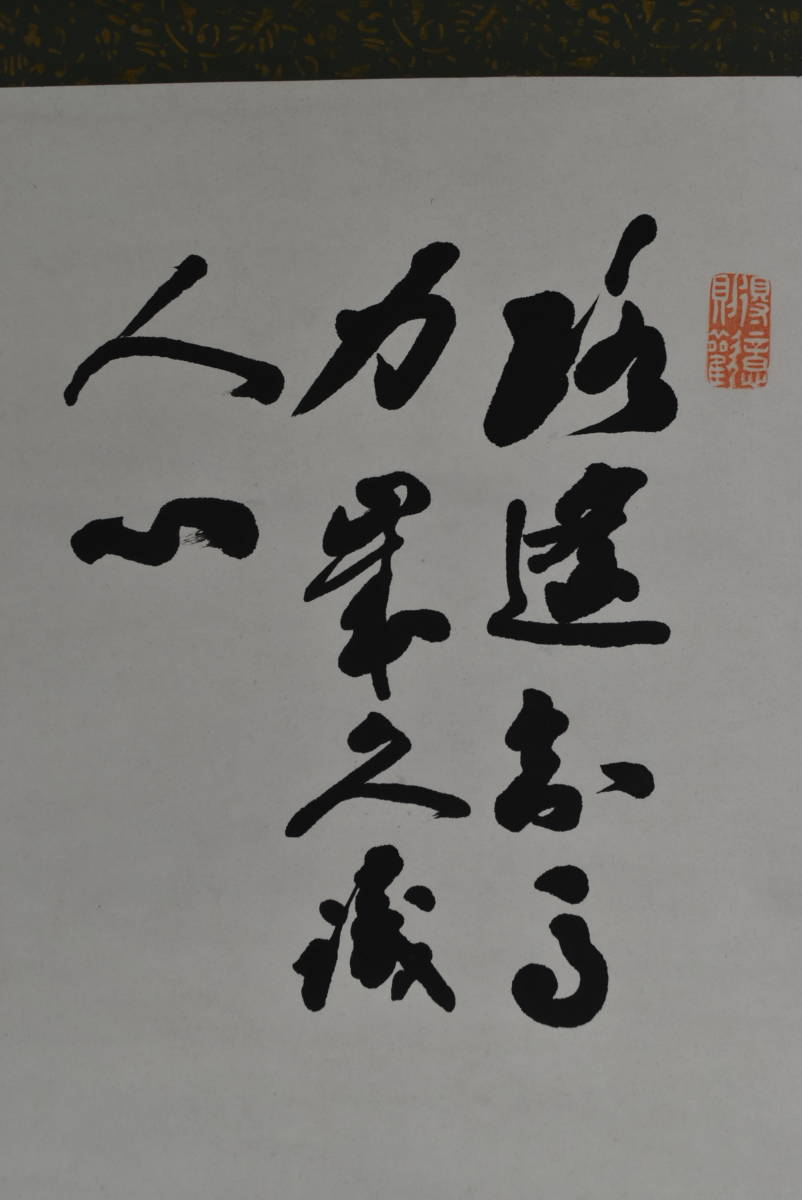 路遥知馬
力歳久識
人心